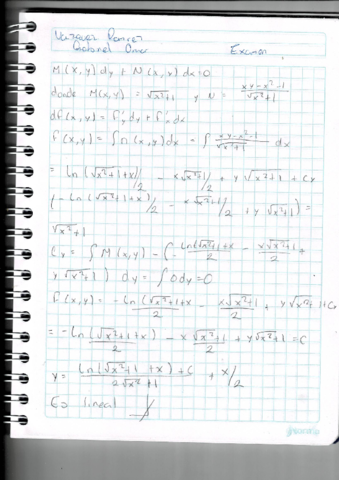 Examen
M(x,y) dy + N(x,y) dx = 0
donde M(x,y) = √x²+1 y N = xy-x²-1 / √x²+1
df(x,y) = f'y dy + f'x dx
f(x,y) = ∫ n(x,y) dx = ∫ xy-x²-1 / √x²+1 dx
= ln(√x²+1+x)/2 - x√x²+1/2 + y√x²+1 + Cx
(-ln(√x²+1+x)/2 - x√x²+1/2 + y√x²+1) =
√x²+1
Cx = ∫ M(x,y) - (- ln(√x²+1)+x / 2 - x√x²+1 / 2 +
y√x²+1) dy = ∫ 0 dy = 0
f(x,y) = - ln(√x²+1+x / 2 - x√x²+1 / 2 + y√x²+1 + Cx
= - ln(√x²+1+x) / 2 - x√x²+1 / 2 + y√x²+1 = C
y = ln(√x²+1+x) + C / 2√x²+1 + x/2
Es lineal